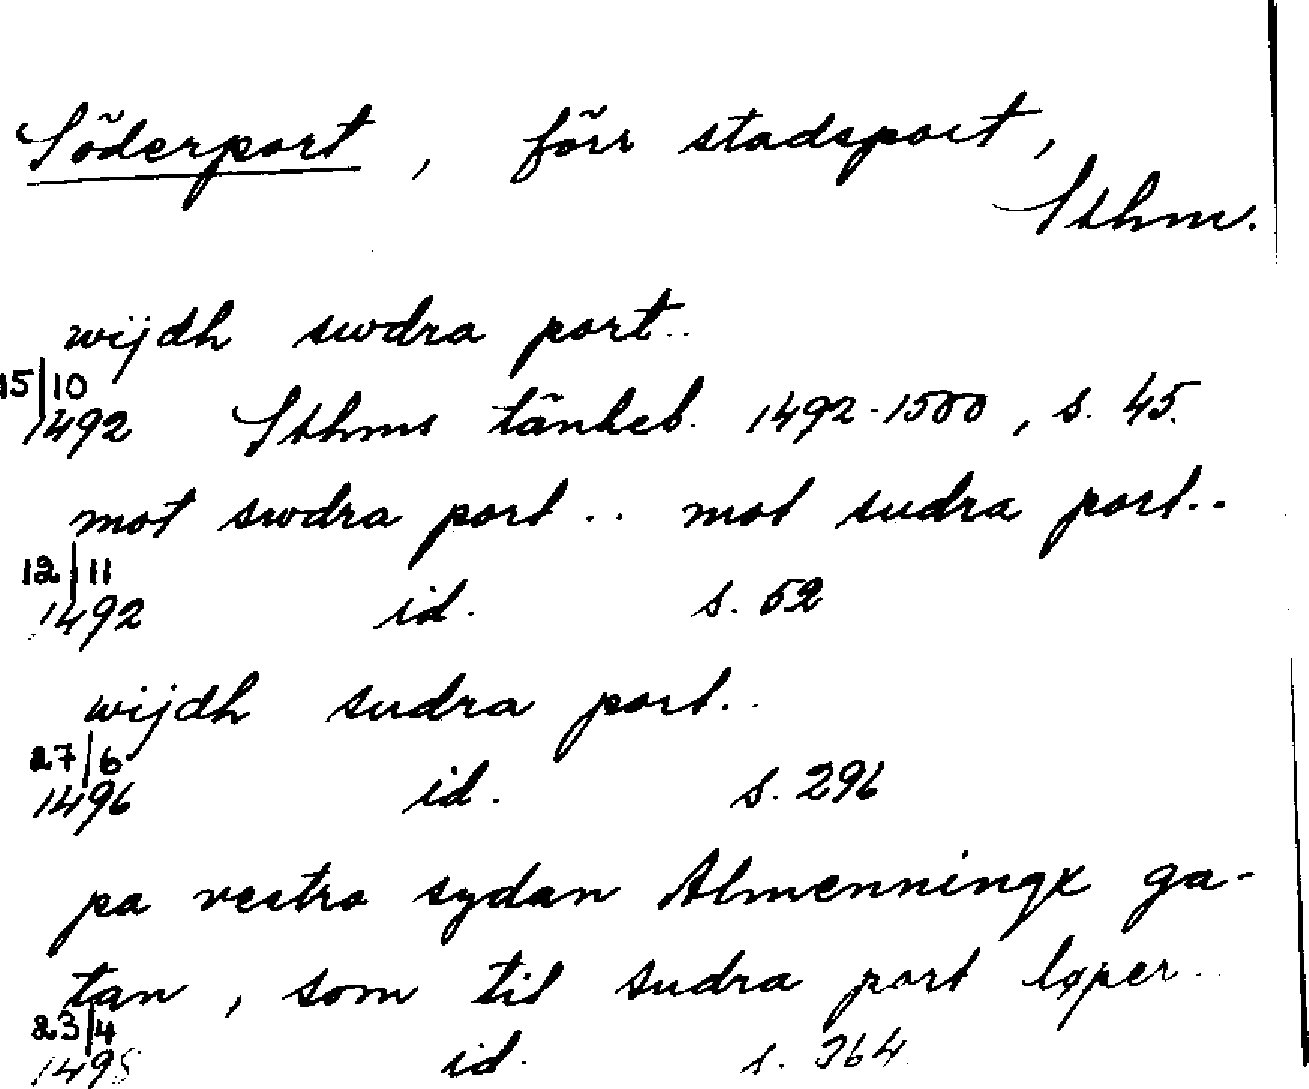 Söderport, förr stadsport,
Sthm.
wijdh swdra port..
15/10
1492 Sthms tänkeb. 1492-1500, s. 45.
mot swdra port.. mot sudra port..
12/11
1492 id. s. 52
wijdh sudra port..
27/6
1496 id. s. 296
pa vestra sydan Almenningx ga-
tan, som til sudra port løper..
23/4
1498 id. s. 364